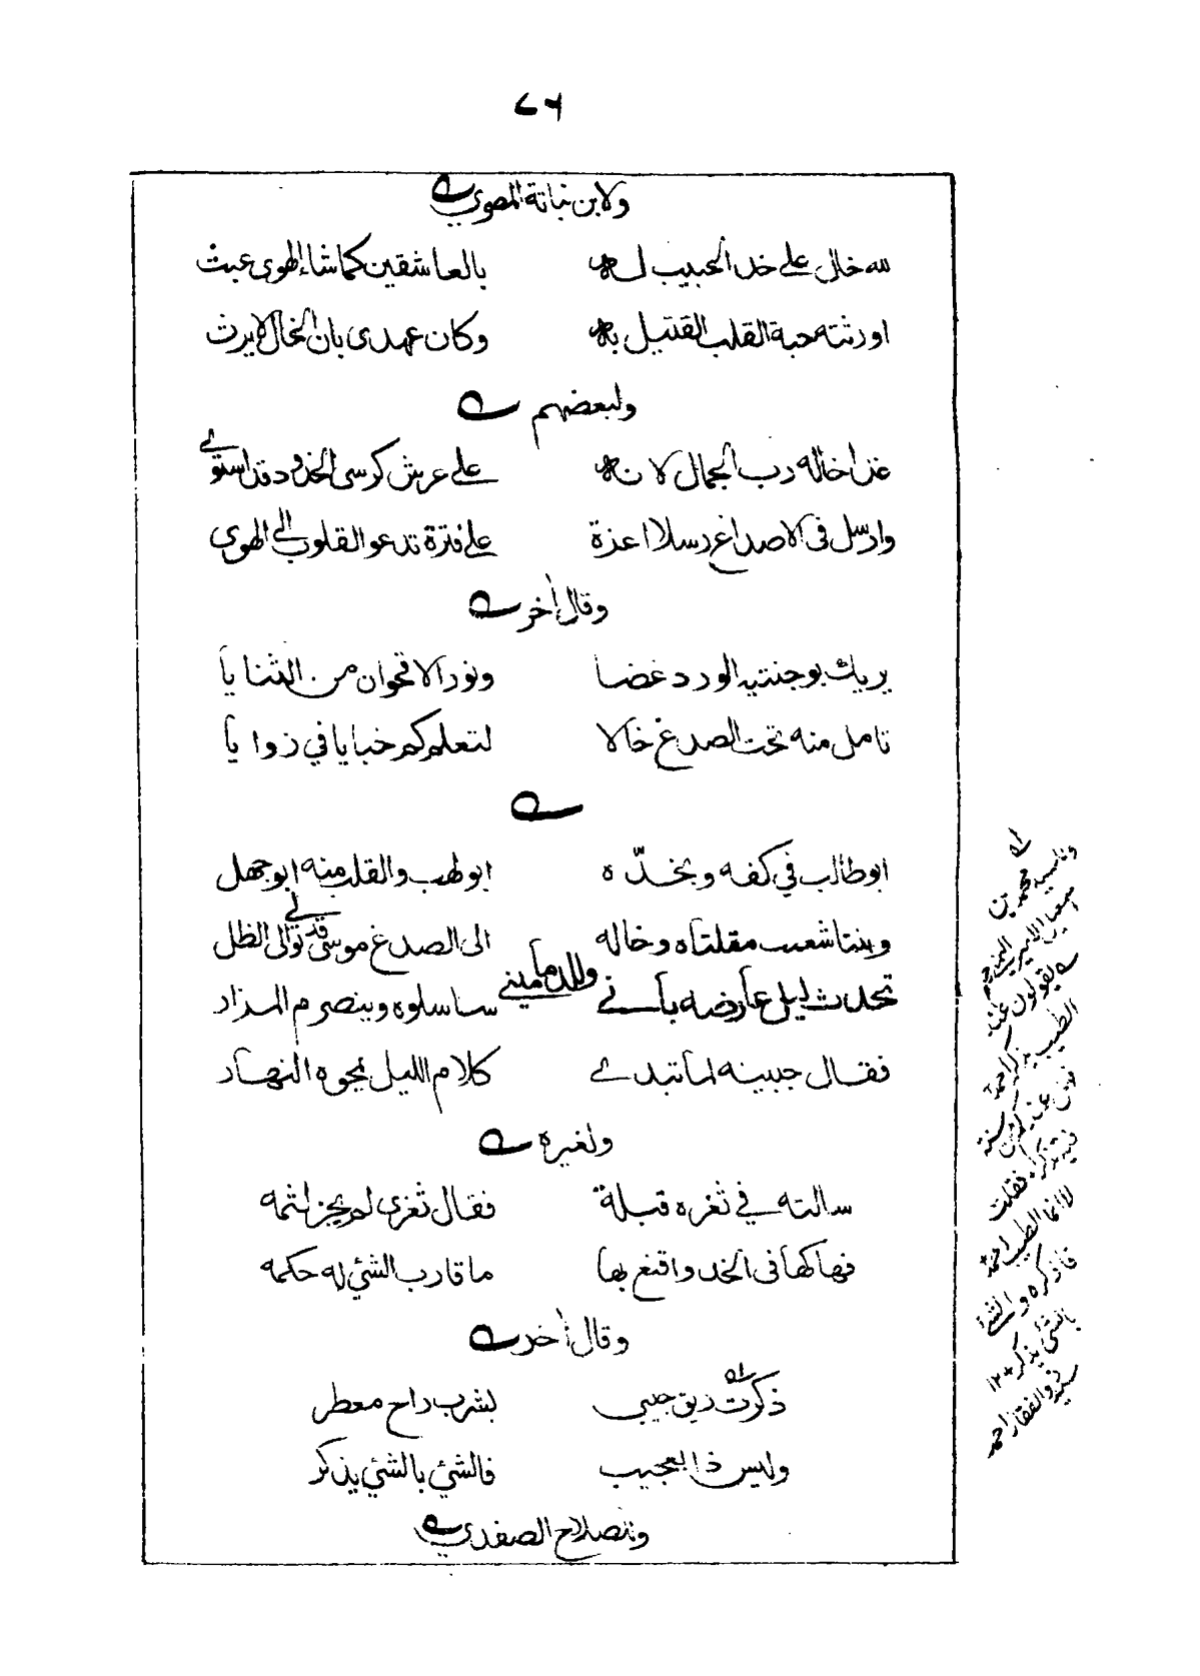 ٧٦
ولابن نباتة المصري
لله خال على خد الحبيب له بالعاشقين كما شاء الهوى عبث
اورثته حبة القلب القتيل به وكان عهدى بان الخال لا يرث
ولبعضهم
غدا خاله رب الجمال لانه على عرش كرسى الخدود قد استوى
وارسل فى الاصداغ رسلا اعزة على فترة تدعو القلوب الى الهوى
وقال أخر
يريك بوجنتيه الورد غضا ونور الاقحوان من الثنايا
تامل منه تحت الصدغ خالا لتعلم كم خبايا في زوايا
ابو طالب في كفه وبخدّه ابو لهب والقلب منه ابو جهل
وبنتا شعيب مقلتاه وخاله الى الصدغ موسى قد تولى الى الظل
وللدماميني
تحدث ليل عارضه باني ساسلوه وينصرم المزار
فقال جبينه لما تبدى كلام الليل يمحوه النهار
ولغيره
سالته في ثغره قبلة فقال ثغرى لم يجز لثمه
فهاكها فى الخد واقنع بها ما قارب الشئ له حكمه
وقال أخر
ذكرت ريق حبيبي بشرب راح معطر
وليس ذا بعجيب فالشئ بالشئ يذكر
وللصلاح الصفدي
محمد بن
يقولون عند
الطيب يذكر احمد
فقلت
لا انما الطيب احمد
فاذكره والشئ
بالشئ يذكر ١٢
سيد ذو الفقار احمد